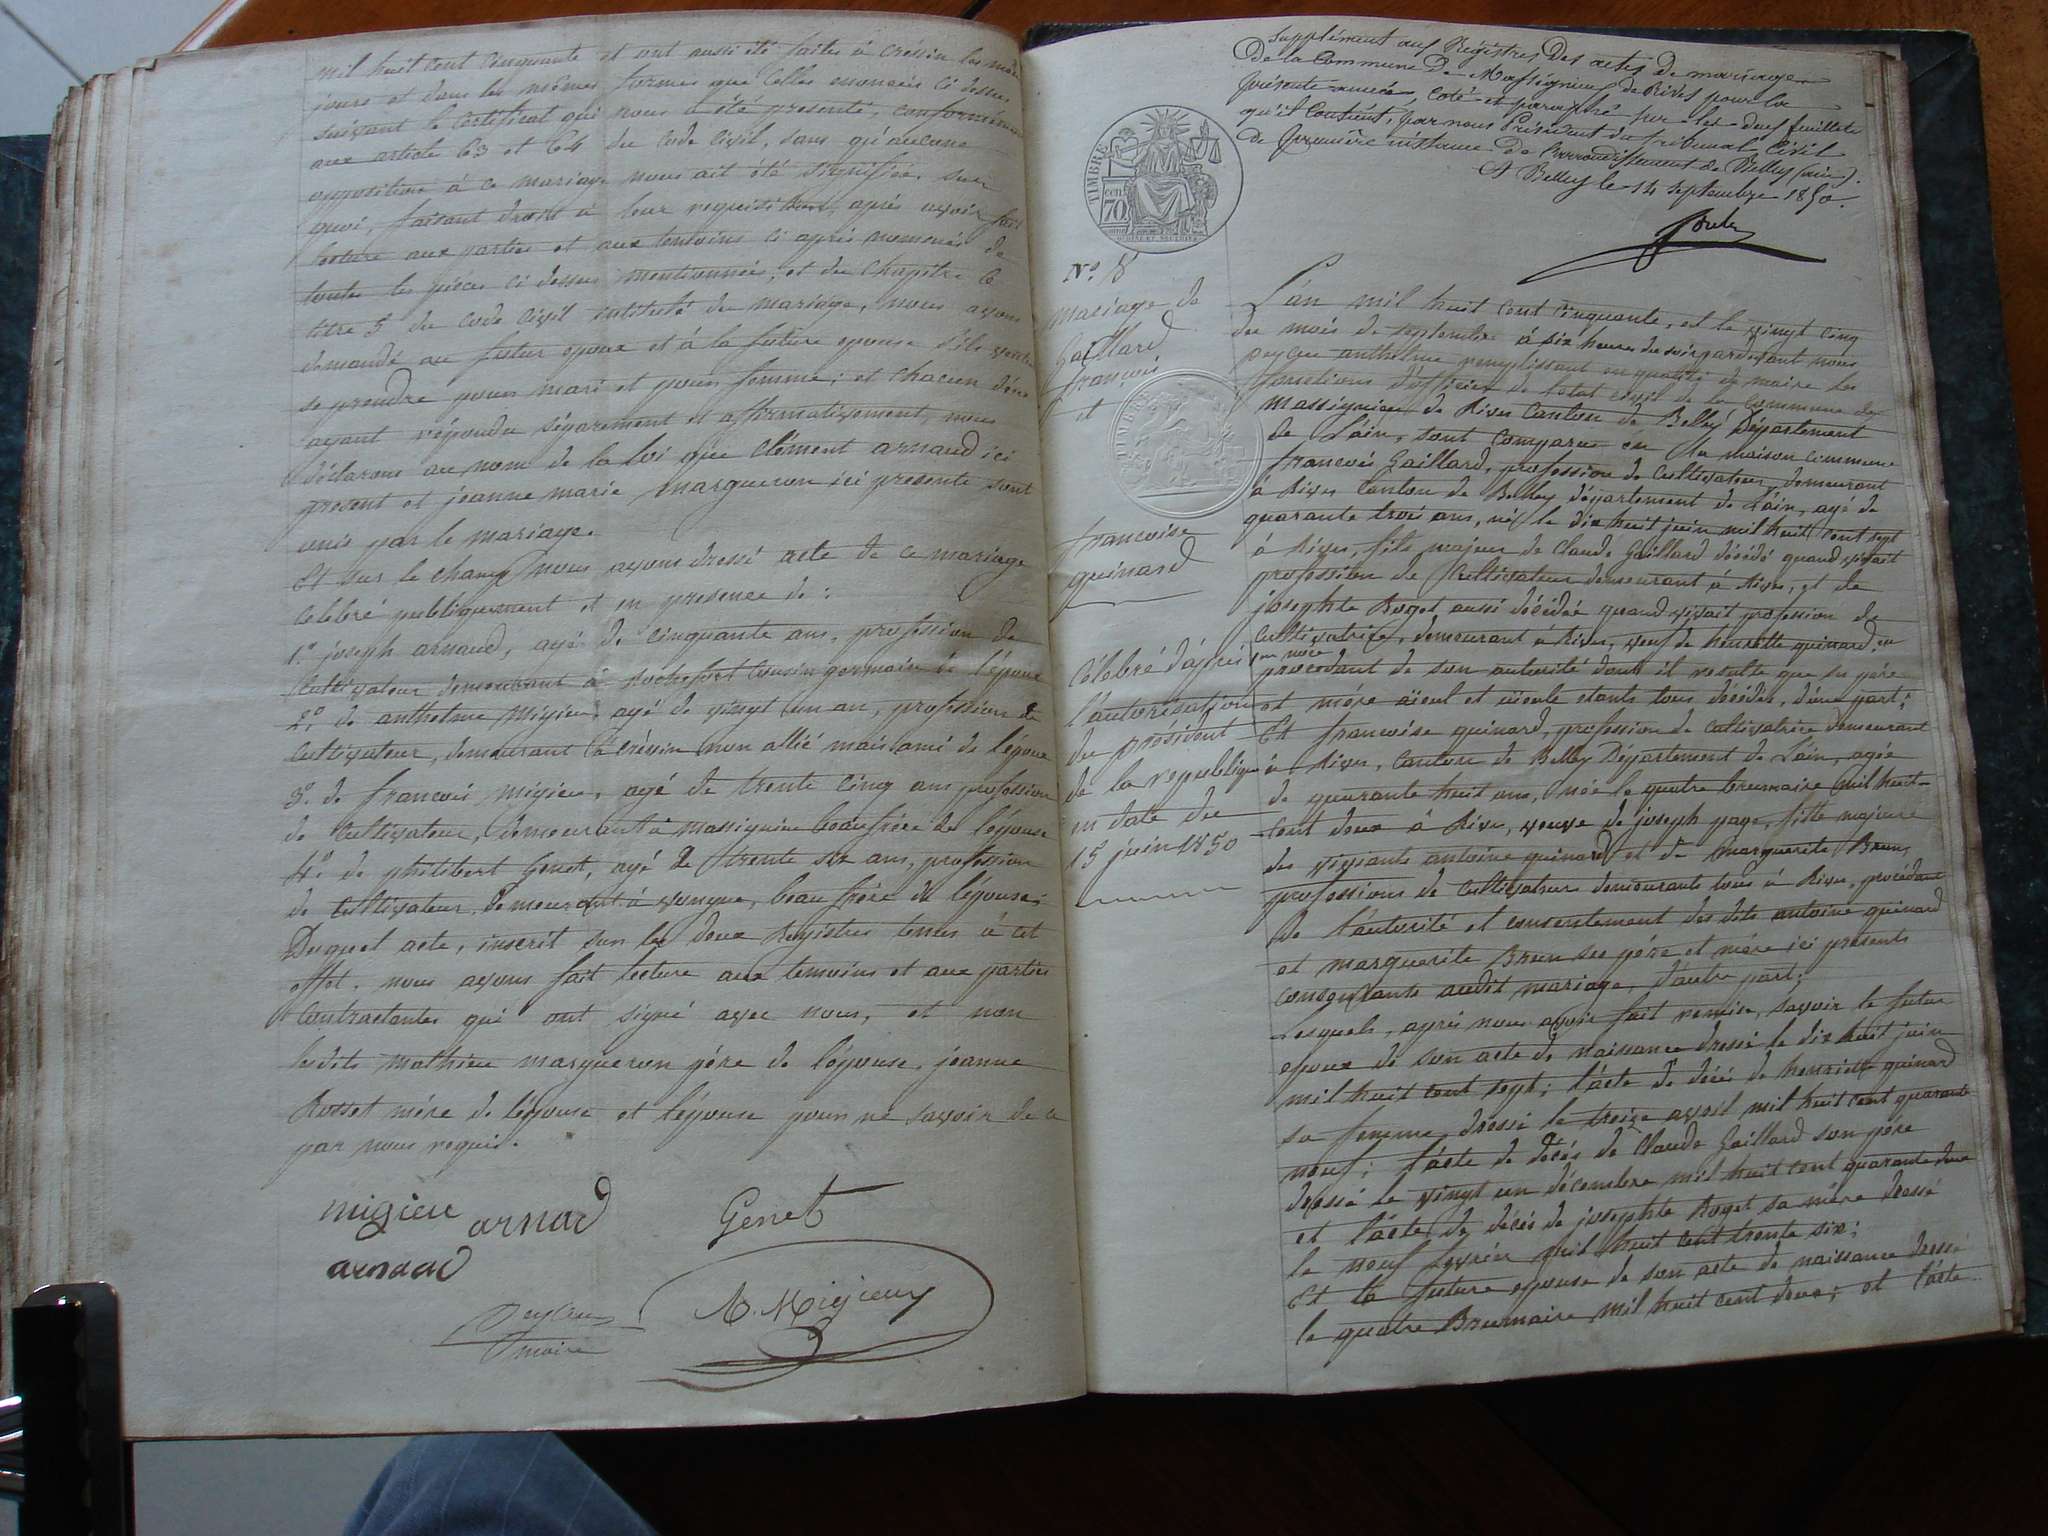 mil huit cent cinquante et ont aussi été faites à crésin les mêmes
jours et dans les mêmes formes que celles enoncées ci dessus
suivant le certificat qui nous a été presenté, conformément
aux article 63 et 64 du code civil, sans qu'aucune
opposition à ce mariage nous ait été signifiée. sur
quoi, faisant droit à leur requisition, après avoir fait
lecture aux parties et aux temoins ci après nommés de
toutes les pièces ci dessus mentionnées, et du chapitre 6
titre 5 du code civil intitulé du mariage, nous avons
demandé au futur epoux et à la future epouse s'ils veulent
se prendre pour mari et pour femme; et chacun d'eux
ayant répondu séparement et affirmativement, nous
déclarons au nom de la loi que Clément arnaud ici
present et jeanne marie margueron ici presente sont
unis par le mariage.
Et sur le champ nous avons dressé acte de ce mariage
celebré publiquement et en presence de :
1º. joseph arnaud, agé de cinquante ans, profession de
cultivateur demeurant à Rochefort cousin germain de l'époux
2º de anthelme Migieu, agé de vingt un an, profession de
cultivateur, demeurant à crésin non allié mais ami de l'époux
3º. de francois migieu, agé de trente cinq ans profession
de cultivateur, demeurant à massignieu beaufrère de l'épouse
4º. de philibert Genet, agé de trente six ans, profession
de cultivateur, demeurant à vongne, beau frère de l'épouse;
Duquel acte, inscrit sur les deux Registres tenus à cet
effet, nous avons fait lecture aux temoins et aux parties
contractantes qui ont signé avec nous, et non
lesdits mathieu margueron père de l'épouse, jeanne
Rosset mère de l'épouse et l'épouse pour ne savoir de ce
par nous requis.
migieu arnad Genet
arnaud
Peyceu A. Migieux
maire
Supplément aux Registres des actes de mariage
de la Commune de Massignieu de Rives pour la
présente année, coté et paraphé sur les deux feuillets
qu'il contient, par nous Président du tribunal Civil
de première instance de l'arrondissement de Belley (ain).
A Belley le 14 septembre 1850.
TIMBRE
70
Nº. 8
mariage de
Gaillard
françois
et
francoise
guinard
Célébré d'après
l'autorisation
du president
de la republique
en date du
15 juin 1850
L'an mil huit cent cinquante, et le vingt cinq
du mois de septembre à six heures du soir pardevant nous
peyceu anthelme remplissant en qualité de maire les
fonctions d'officier de l'état civil de la commune de
massignieu de Rives canton de Belley Département
de l'ain, sont comparu en la maison commune
francois Gaillard, profession de cultivateur, demeurant
à Rives canton de Belley département de l'ain, agé de
quarante trois ans, né le dix huit juin mil huit cent sept
à Rives, fils majeur de claude Gaillard décédé quand vivait
profession de cultivateur demeurant à Rives, et de
josephte Roget aussi décédée quand vivait profession de
cultivatrice, demeurant à Rives, veuf de henriette guinard, sa
procedant de son autorité dont il resulte que ses père
et mère aïeul et aïeule etants tous décédés, d'une part;
Et francoise guinard, profession de cultivatrice demeurant
à Rives, canton de Belley Département de l'ain, agée
de quarante huit ans, née le quatre brumaire mil huit
cent deux à Rives, veuve de joseph page, fille majeure
des vivants antoine guinard et de marguerite Brun,
professions de cultivateurs demeurants tous à Rives, procédant
de l'autorité et consentement des dits antoine guinard
et marguerite Brun ses père et mère ici présents
consentants audit mariage, d'autre part;
Lesquels, après nous avoir fait remise, savoir le futur
epoux de son acte de naissance dressé le dix huit juin
mil huit cent sept; l'acte de décés de henriette guinard
sa femme dressé le treize avril mil huit cent quarante
neuf; l'acte de décés de claude Gaillard son père
dressé le vingt un décembre mil huit cent quarante deux
et l'acte de décés de josephte Roget sa mère dressé
le neuf février mil huit cent trente six;
Et la future epouse de son acte de naissance dressé
le quatre Brumaire mil huit cent deux; et l'acte